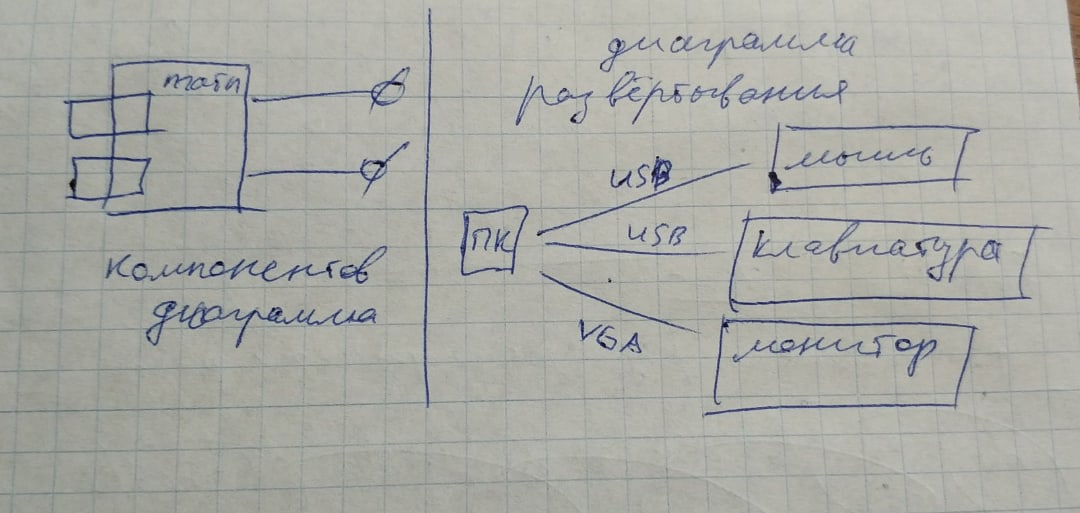 компонентов
диаграмма
диаграмма
развёртывания
USB
мышь
ПК
USB
клавиатура
VGA
монитор